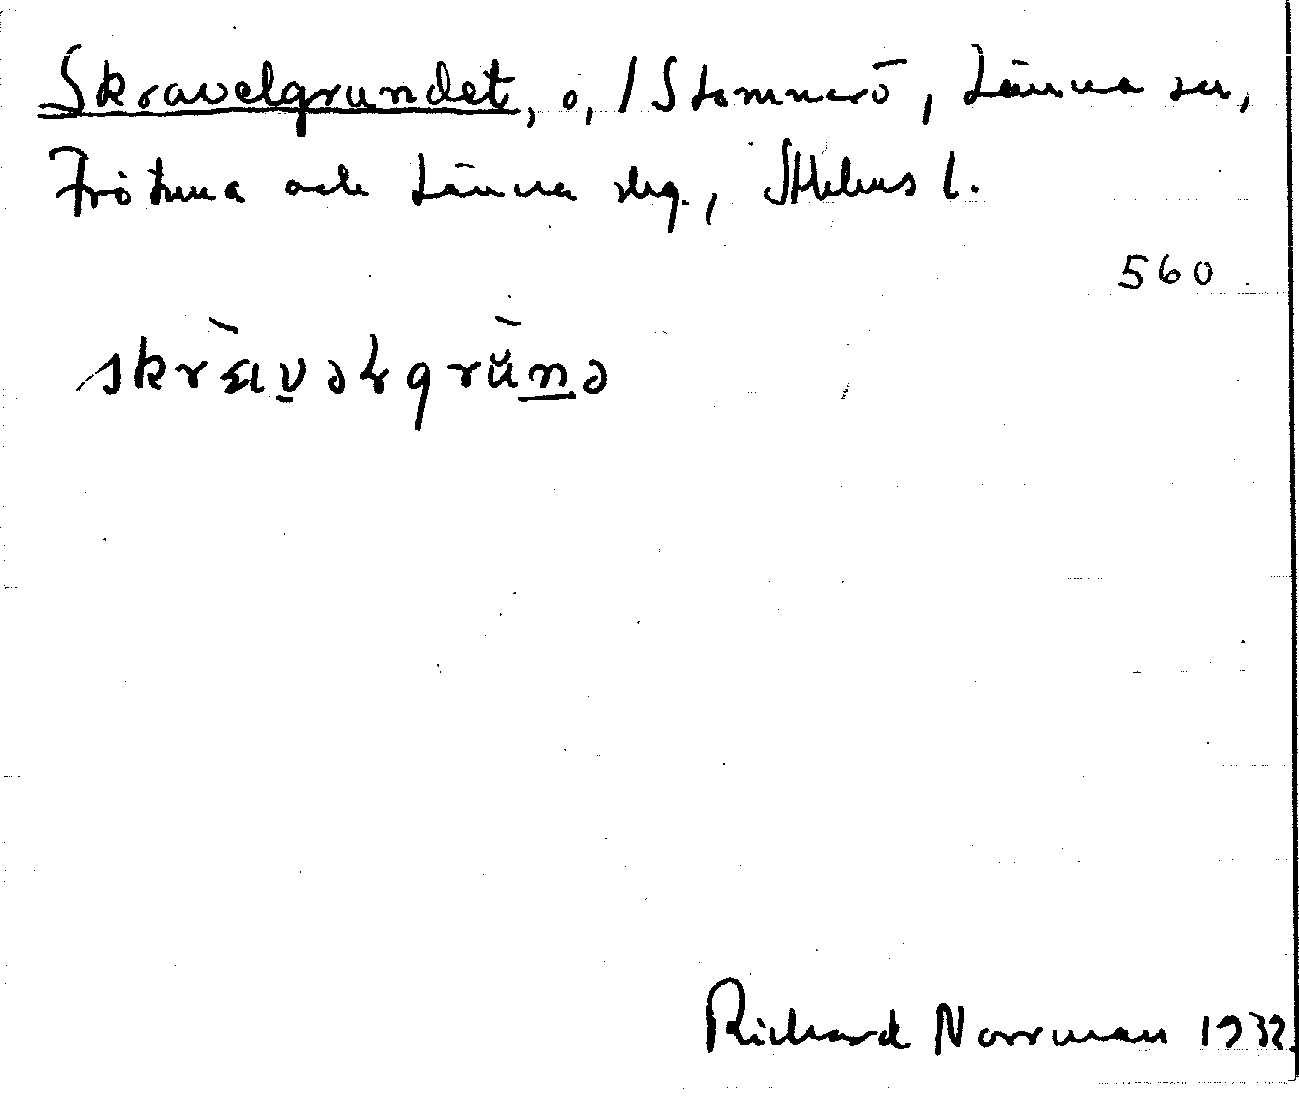 Skravelgrundet, ö, / Stomnarö, Länna sn,
Frötuna och Länna skg., Sthlms l.
560
skrɛ̀ɩvəɫgrŭ̀nə
Richard Norrman 1932.